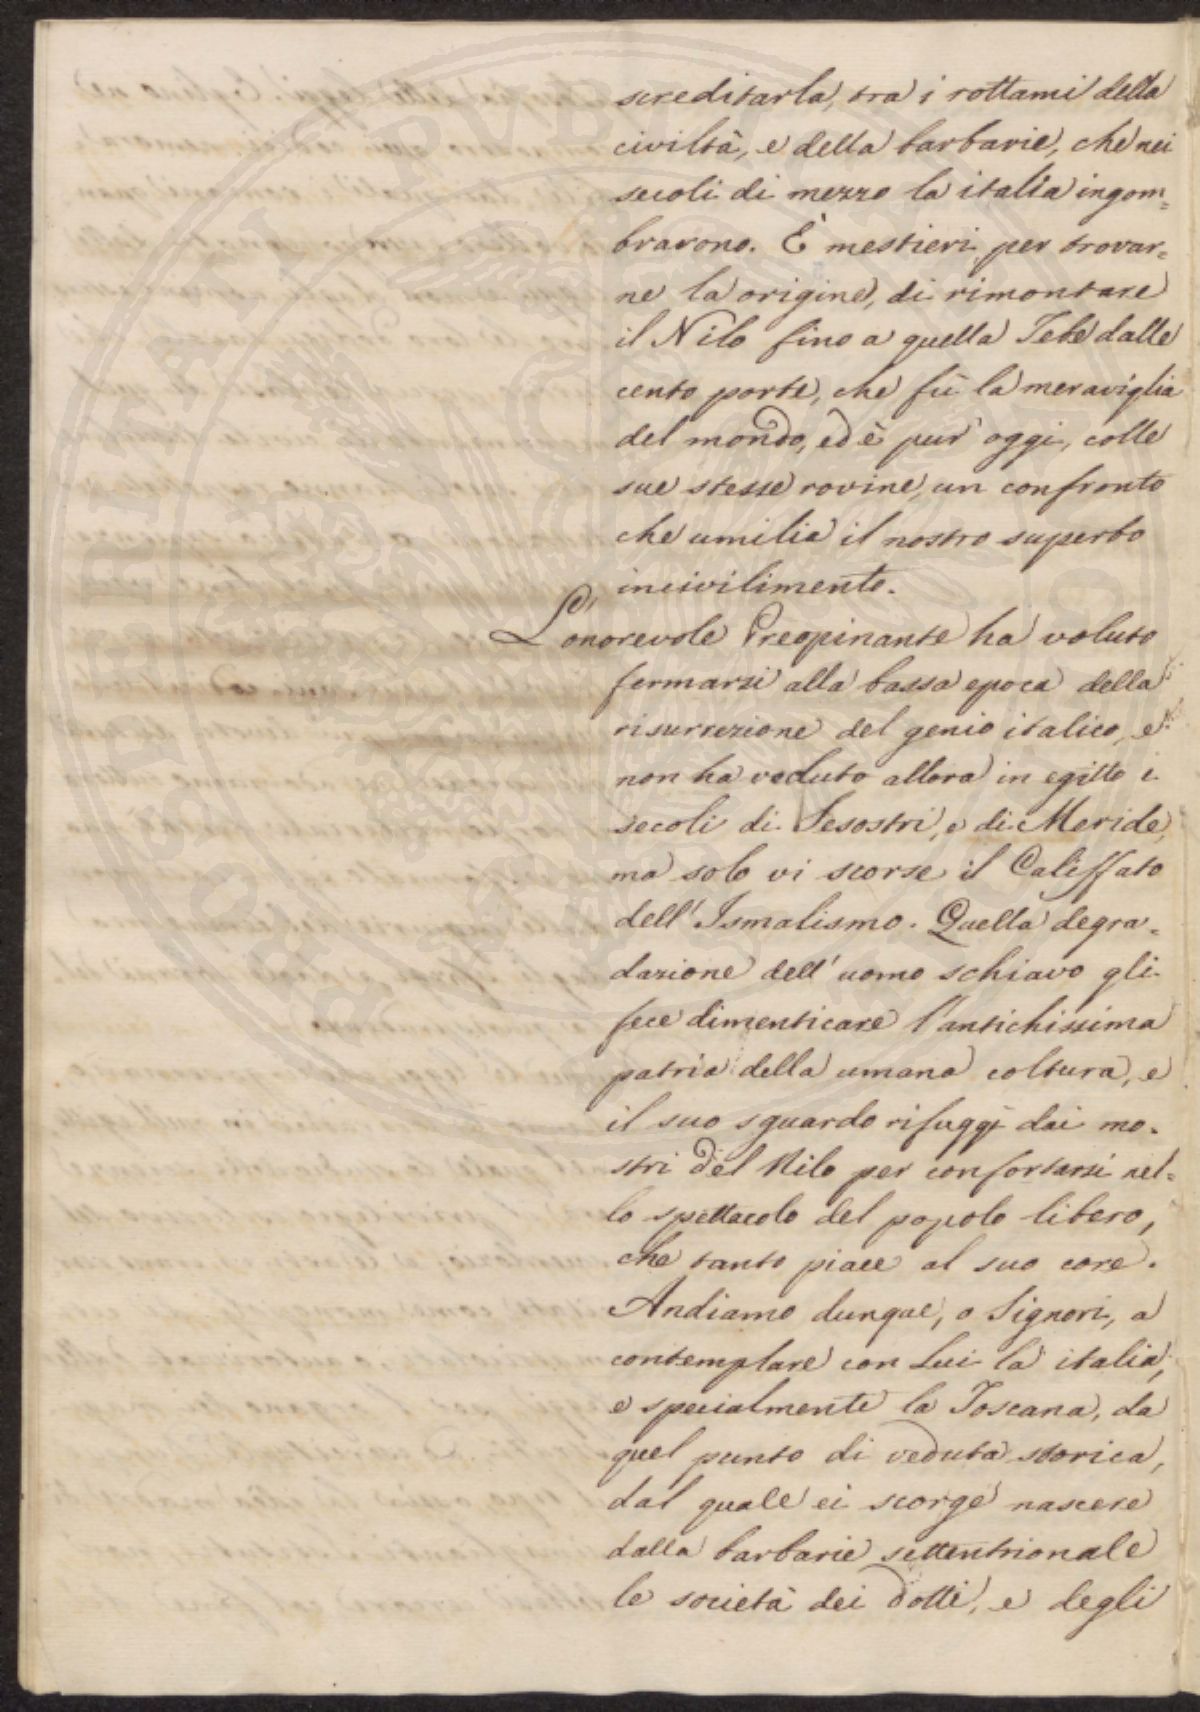 screditarla, tra i rottami della
civiltà, e della barbarie, che nei
secoli di mezzo la italia ingom=
brarono. È mestieri, per trovar=
ne la origine, di rimontare
il Nilo fino a quella Tebe dalle
cento porte, che fù la meraviglia
del mondo, ed è pur' oggi, colle
sue stesse rovine, un confronto
che umilia il nostro superbo
incivilimento.
L'onorevole Preopinante ha voluto
fermarsi alla bassa epoca della
risurrezione del genio italico, e
non ha veduto allora in egitto i
secoli di Sesostri, e di Meride,
ma solo vi scorse il Califfato
dell'Ismalismo. Quella degra=
dazione dell'uomo schiavo gli
fece dimenticare l'antichissima
patria della umana coltura, e
il suo sguardo rifuggì dai mo=
stri del Nilo per confortarsi nel=
lo spettacolo del popolo libero,
che tanto piace al suo core.
Andiamo dunque, o Signori, a
contemplare con Lui la italia,
e specialmente la Toscana, da
quel punto di veduta storica,
dal quale ei scorge nascere
dalla barbarie settentrionale
le società dei dotti, e degli